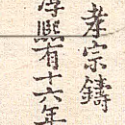 孝宗鑄
淳熙有十六年